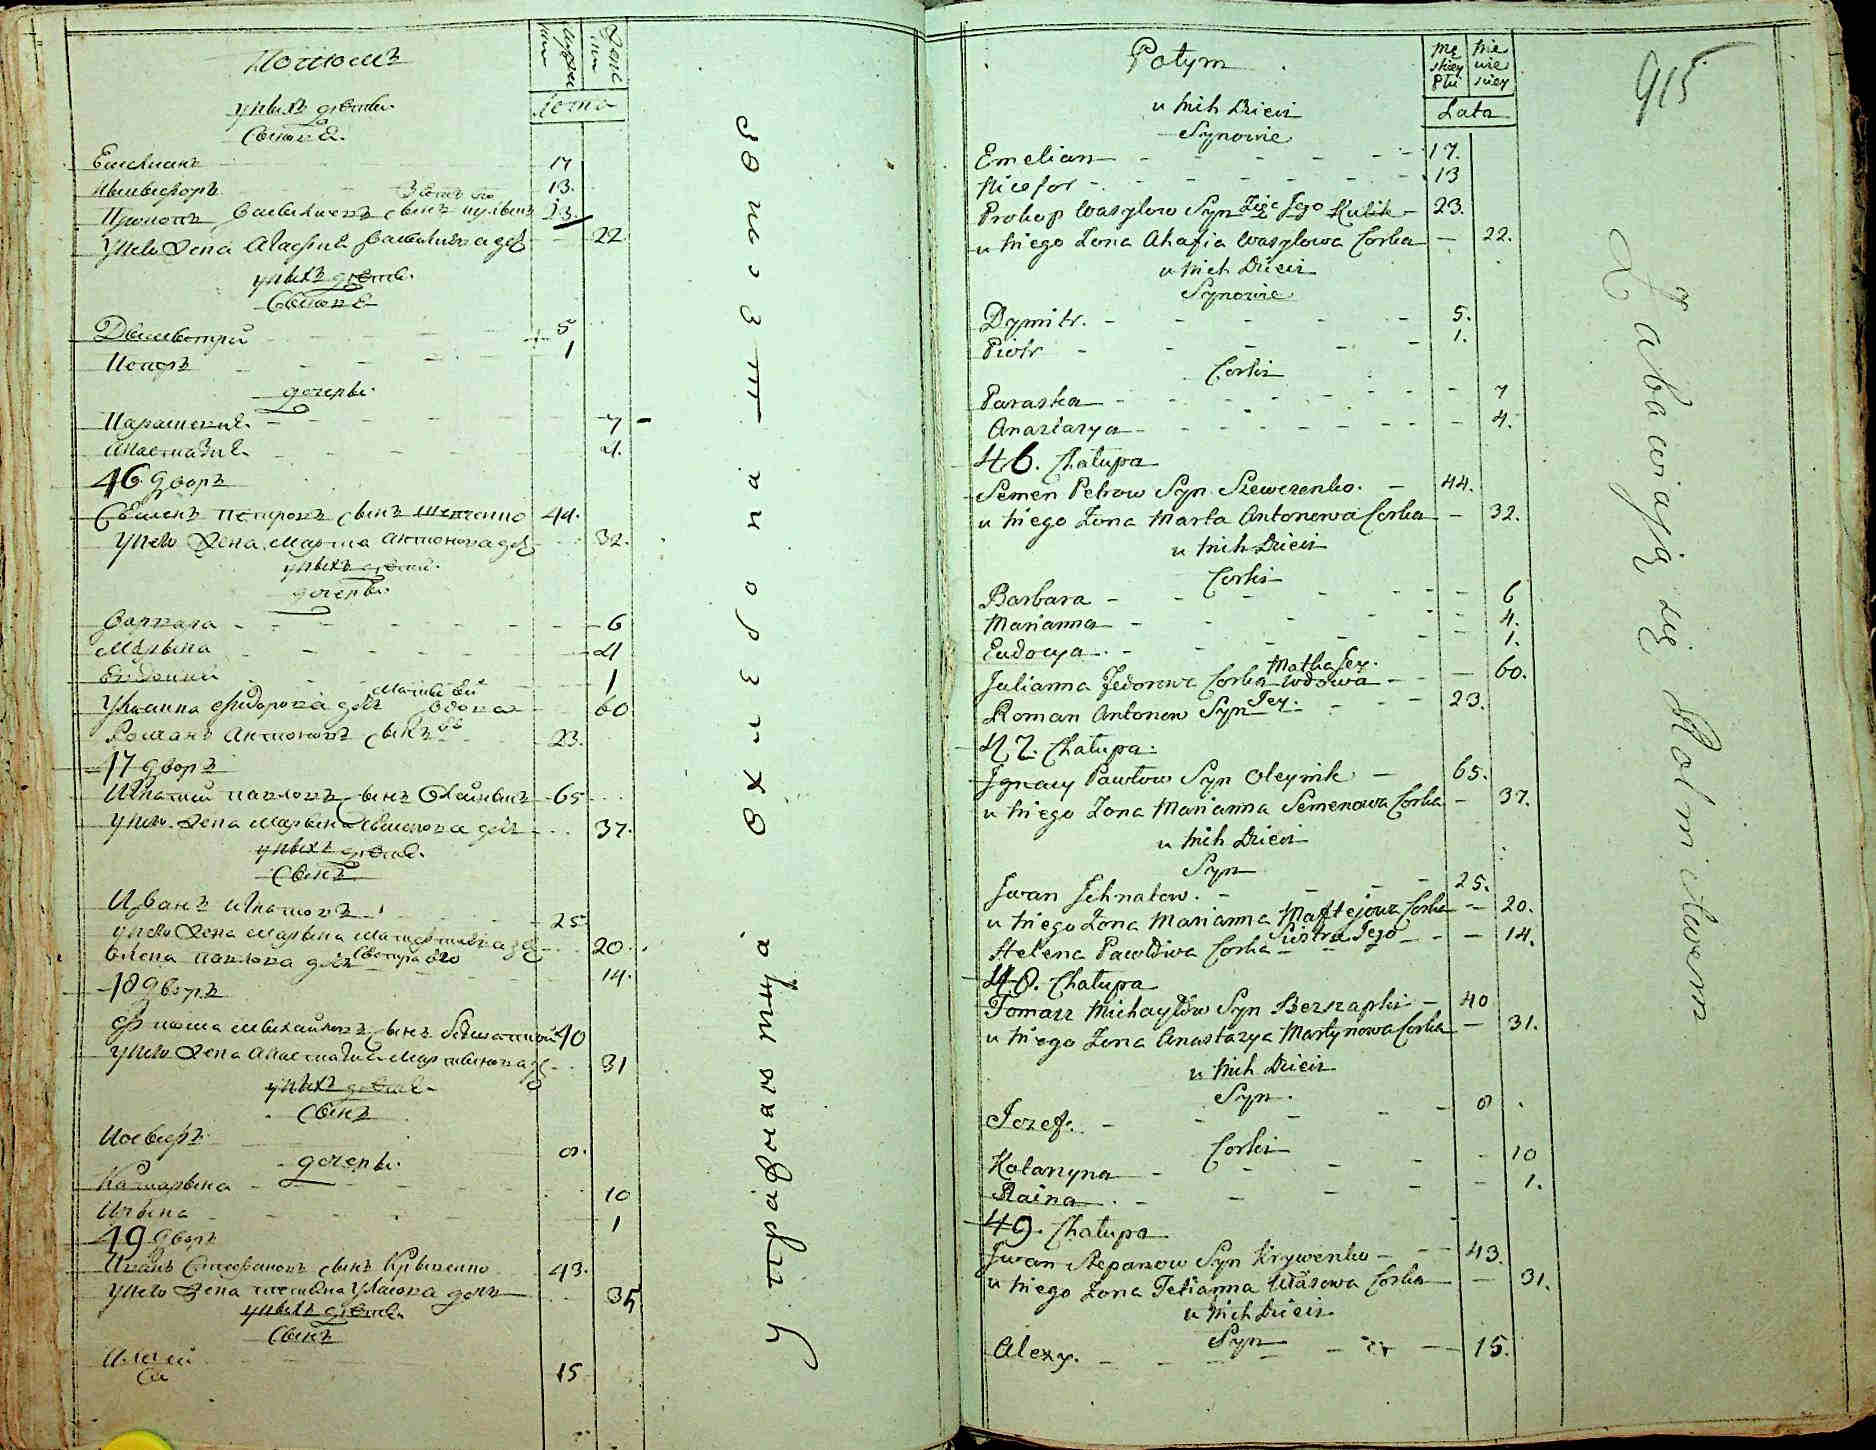 Потомъ
Муже
Жене
Лета
у нихъ дети
Сынове
Емелианъ 17
Никифоръ 13.
Зять его
Прокопъ Василиевъ сынъ 23.
у него Жена Агафия Василиева доч 22
у нихъ дети
Сынове
Димитрий 5
Петръ 1
дочери
Параскевия 7
Анастазия 4.
46 Дворъ
Семенъ Петровъ сынъ Шевченко 44.
у него Жена Марта Антонова доч 32.
у нихъ дети
дочери
Варвара 6
Марьяна 4
Евдокия 1
Мати ей
Ульянна Фиодорова доч вдова 60
Романъ Антоновъ сынъ ее 23.
47 Дворъ
Игнатий Павловъ сынъ Олейникъ 65
у него Жена Марьяна Семенова доч 37.
у нихъ дети
Сынъ
Иванъ Игнатовъ 25
у него Жена Марьяна доч 20.
Елена Павлова доч Сестра его 14.
48 Дворъ
Фома Михайловъ сынъ 40
у него Жена Анастазия Мартинова доч 31
у нихъ дети
Сынъ
Иосифъ 8.
дочери
Катарына 10
1
49 Дворъ
Иванъ Стефановъ сынъ Кривенко 43.
у него Жена Татияна Уласова доч 35
у нихъ дети
Сынъ
15
упражняютца
Potym
Mę skiey Płci
Nie wie skiey
Lata
u Nich Dzieci
Synowie
Emelian 17.
Nicefor 13
Prokop Wasylow Syn Zięć Jego Kulik 23.
u Niego Zona Ahafia Wasylowa Corka 22.
u Nich Dzieci
Synowie
Dymitr. 5.
Piotr 1.
Corki
Paraska 7
Anaztazya 4.
46. Chałupa
Semen Petrow Syn Szewczenko. 44.
u Niego Zona Marta Antonowa Corka 32.
u Nich Dzieci
Corki
Barbara 6
Marianna 4.
Eudocya 1.
Matka Jey.
Julianna Fedorowa Corka Wdowa 60.
Roman Antonow Syn Jey. 23.
47. Chałupa.
Ignacy Pawłow Syn Oleynik 65.
u Niego Zona Marianna Semenowa Corka 37.
u Nich Dzieci
Syn
Iwan Ihnatow. 25.
u Niego Zona Marianna Maftejowa Corka 20.
Helena Pawłowa Corka Siostra Jego 14.
48. Chałupa
Tomasz Michayłow Syn Bezszapki 40
u Niego Zona Anastazya Martynowa Corka 31.
u Nich Dzieci
Syn.
Jozef. 8
Corki
Katarzyna 10
Raina 1.
49. Chałupa
Iwan Stepanow Syn Krywenko 43.
u Niego Zona Tetianna Ułasowa Corka 31.
u Nich Dzieci
Syn
Alexy. 15.
915
Zabawiają się Rolnictwem